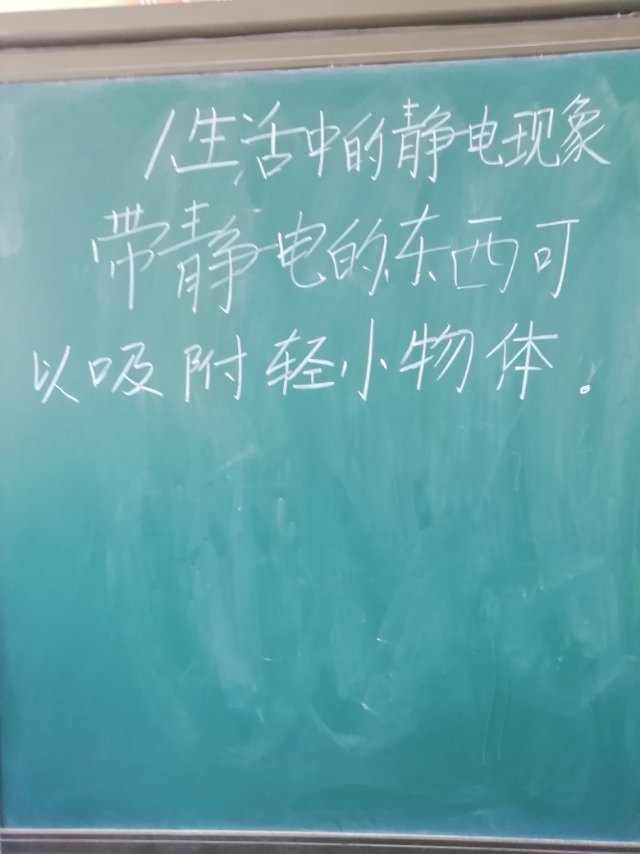 1生活中的静电现象
带静电的东西可
以吸附轻小物体.